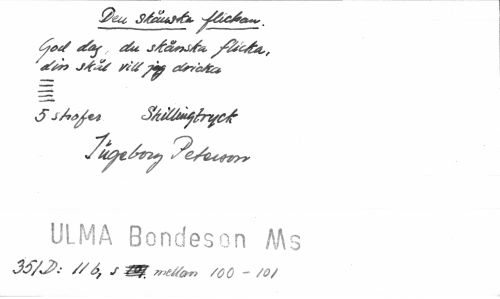 Den skånska flickan.
God dag, du skånska flicka,
din skål vill jag dricka
5 strofer Skillingtryck
Ingeborg Peterson
ULMA Bondeson Ms
351D: 11 b, s mellan 100 - 101